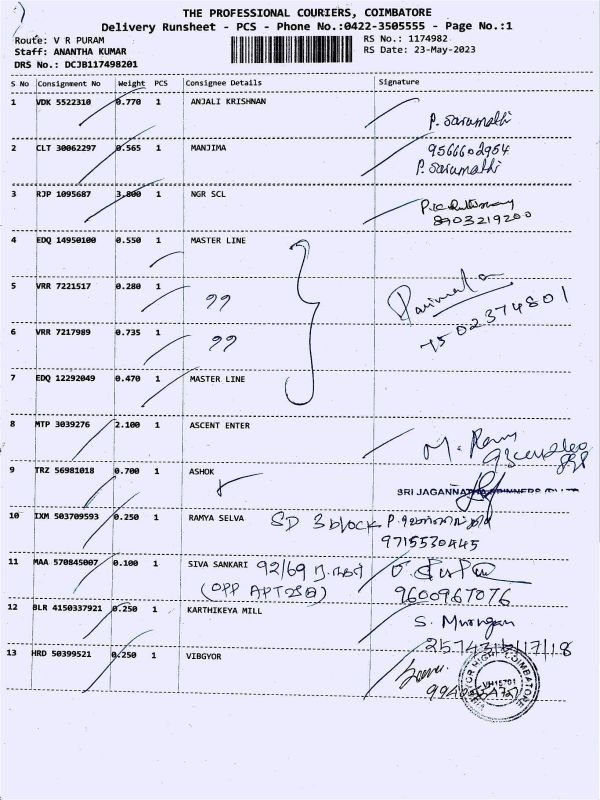 THE PROFESSIONAL COURIERS, COIMBATORE
Delivery Runsheet - PCS - Phone No.:0422-3505555 - Page No.:1
Route: V R PURAM
RS No.: 1174982
Staff: ANANTHA KUMAR
RS Date: 23-May-2023
DRS No.: DCJB117498201
S No Consignment No Weight PCS Consignee Details Signature
1 VDK 5522310 0.770 1 ANJALI KRISHNAN
P. Saramathi
2 CLT 30062297 0.565 1 MANJIMA 9566602954
P. Saramathi
3 RJP 1095687 3.800 1 NGR SCL
8903219200
4 EDQ 14950100 0.550 1 MASTER LINE
5 VRR 7221517 0.280 1 ,,
Parimala
7502374801
6 VRR 7217989 0.735 1 ,,
7 EDQ 12292049 0.470 1 MASTER LINE
8 MTP 3039276 2.100 1 ASCENT ENTER
M. Ramu
9 TRZ 56981018 0.700 1 ASHOK
SRI JAGANNATHA SPINNERS
10 IXM 503709593 0.250 1 RAMYA SELVA SD 3 block
9715530445
11 MAA 570845007 0.100 1 SIVA SANKARI 92/69
(OPP APT
9600967076
12 BLR 4150337921 0.250 1 KARTHIKEYA MILL
S. Murugan
13 HRD 50399521 0.250 1 VIBGYOR
VIBGYOR HIGH COIMBATORE